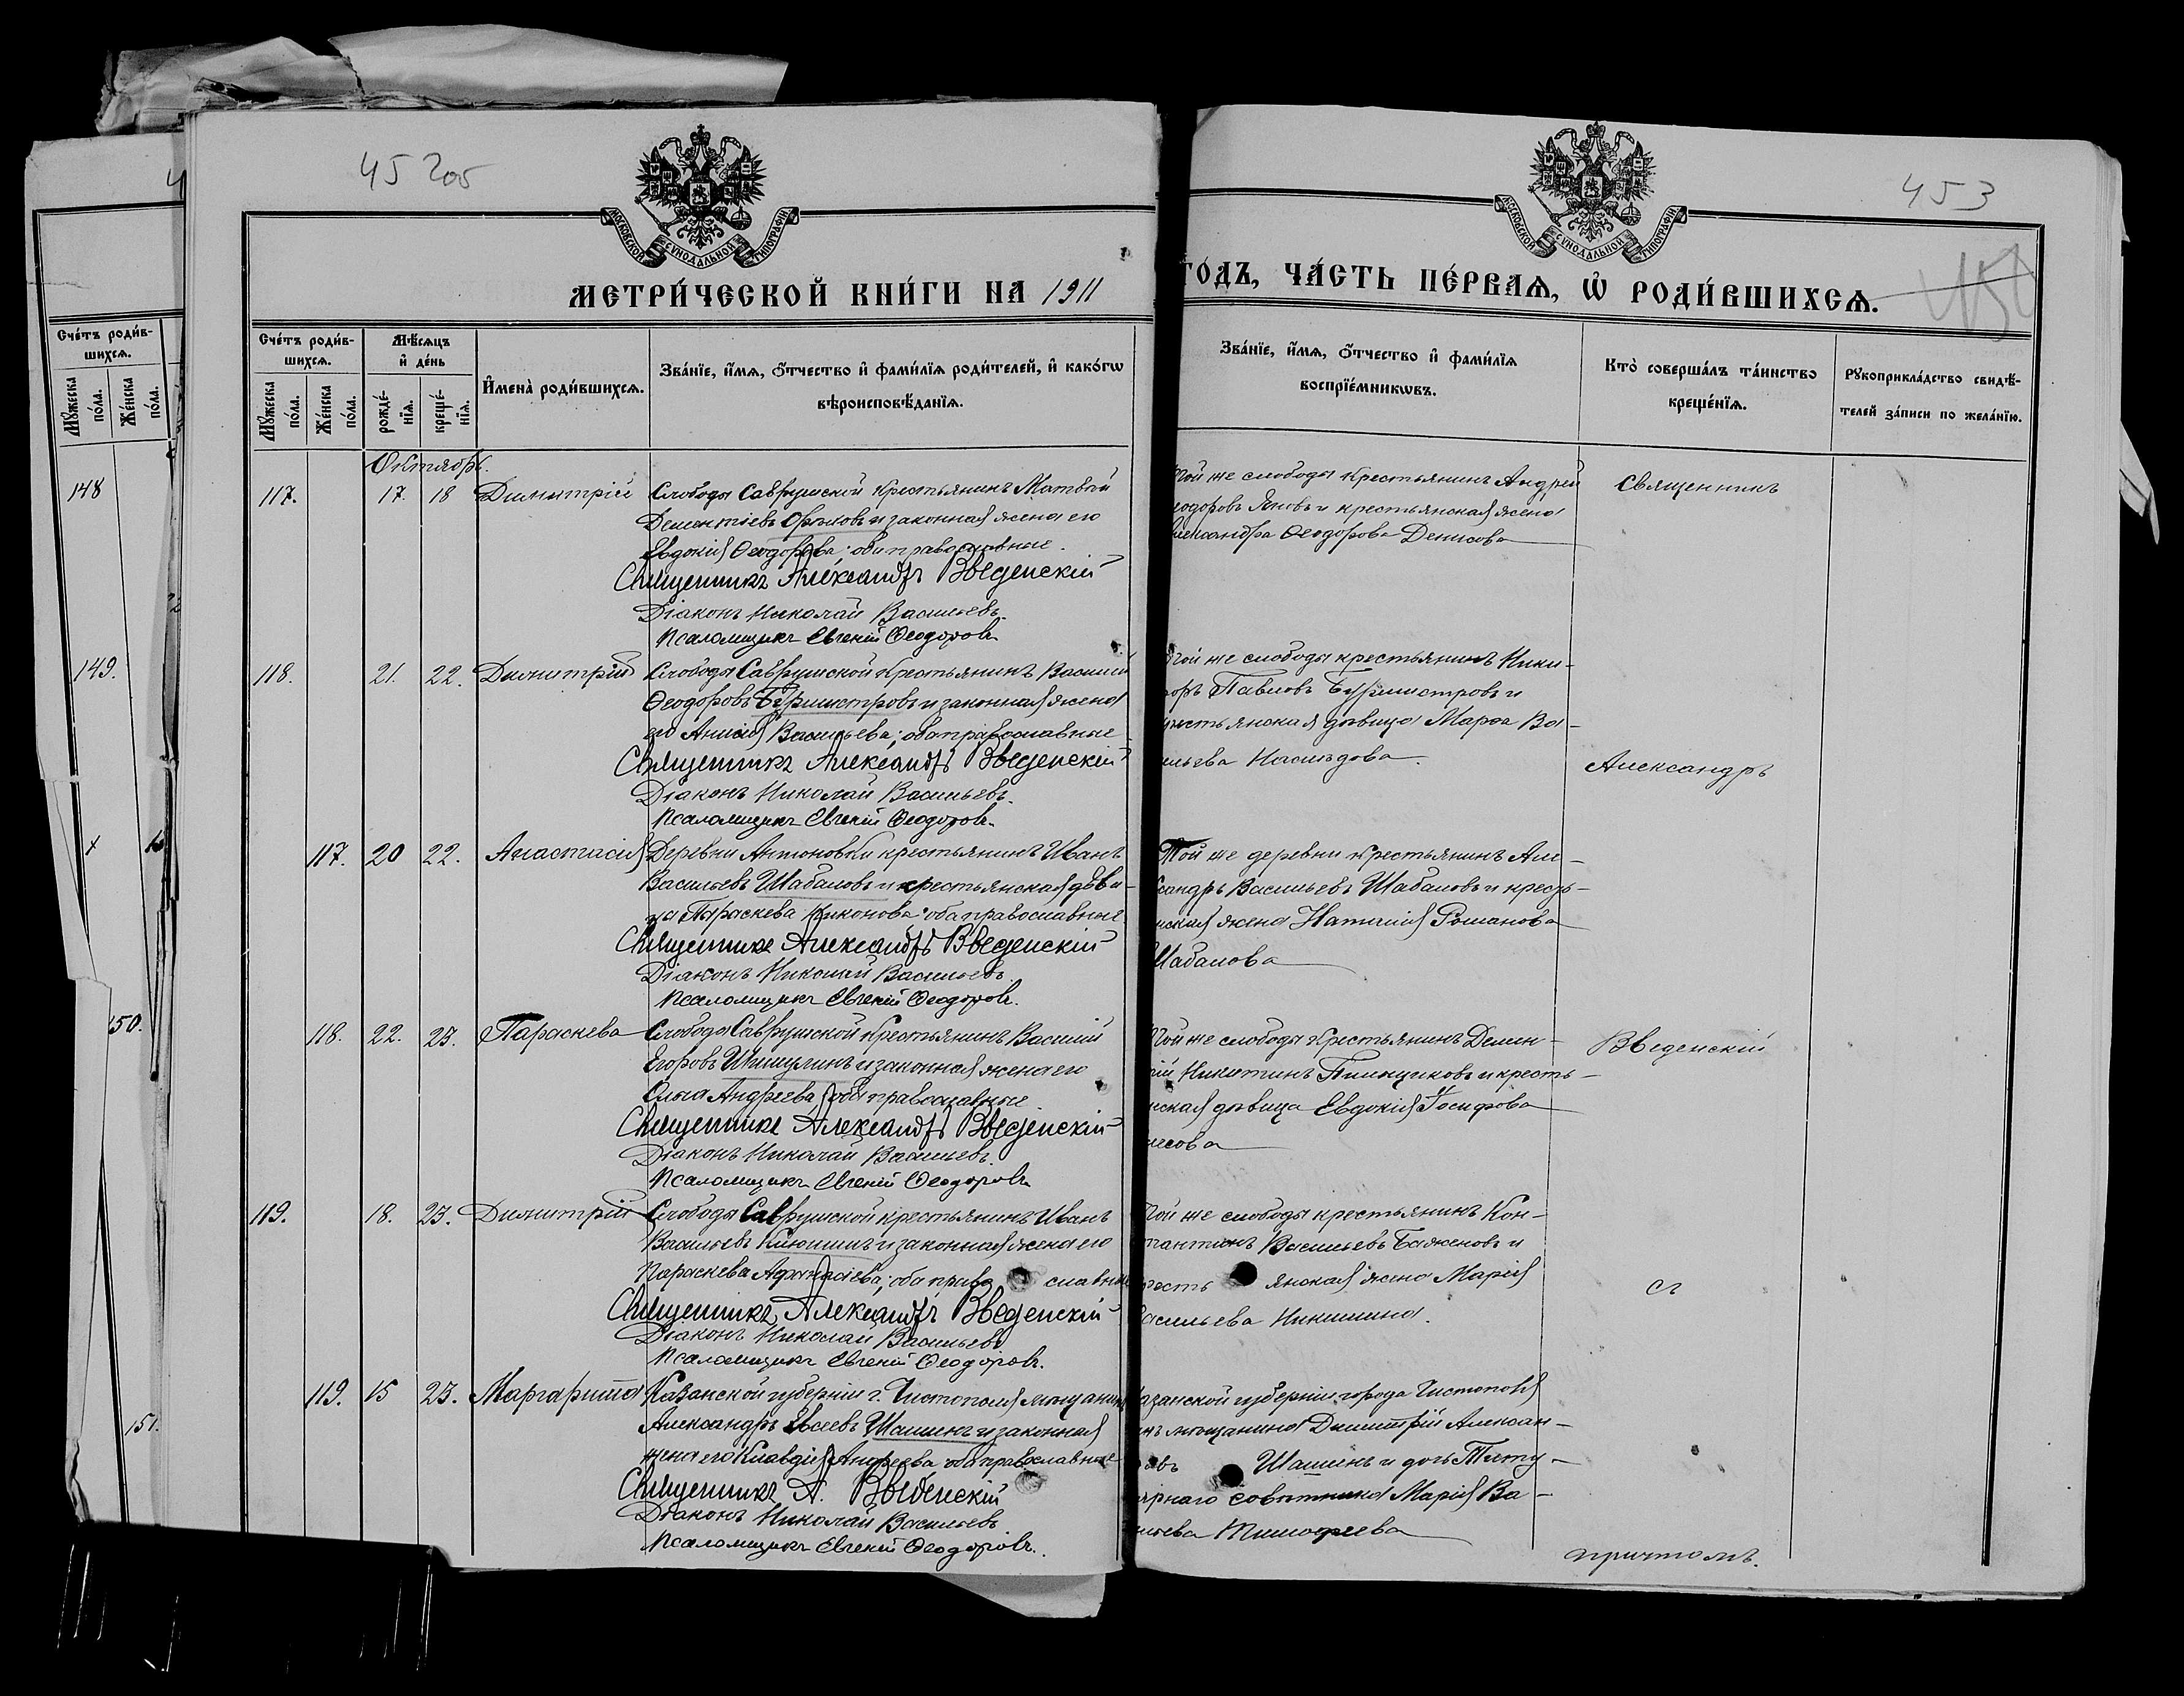 45 2об
453
МОСКОВСКОЙ СѴНОДАЛЬНОЙ ТИПОГРАФІИ
МОСКОВСКОЙ СѴНОДАЛЬНОЙ ТИПОГРАФІИ
МЕТРИ́ЧЕСКОЙ КНИ́ГИ НА 1911
ГОДЪ, ЧА́СТЬ ПЕ́РВАѦ, Ѡ РОДИ́ВШИХСѦ.
Счéтъ роди́в-
шихсѧ.
Мꙋжеска
по́ла.
Же́нска
по́ла.
148
149.
150.
151.
Счéтъ роди́в-
шихсѧ.
Мꙋжеска
по́ла.
Же́нска
по́ла.
Мѣ́сѧцъ
и҆ де́нь
рожде́-
нїѧ.
креще́-
нїѧ.
И҆мена̀ роди́вшихсѧ.
Зва́нїе, и҆́мѧ, ѻ҆́тчество и҆ фами́лїѧ роди́телей, и҆ како́гѡ
вѣроисповѣ́данїѧ.
Зва́нїе, и҆́мѧ, ѻ҆́тчество и҆ фами́лїѧ
воспрїе́мникѡвъ.
Кто̀ соверша́лъ та́инство
креще́нїѧ.
Рꙋкоприкла́дство свидѣ́-
телей за́писи по жела́нїю.
Октябрь.
117. 17. 18 Димитрій
Слободы Саврушской крестьянинъ Матвѣй
Дементіевъ и законная жена его
Евдокія Ѳеодорова; оба православные.
Священникъ Александръ Введенскій
Діаконъ Николай Васильевъ.
Псаломщикъ Евгеній Ѳеодоровъ.
Той же слободы крестьянинъ Андрей
еодоровъ Яковъ и крестьянская жена
лександра Ѳеодорова Денисова
Священникъ
118. 21. 22. Димитрій
Слободы Саврушской крестьянинъ Василій
Ѳеодоровъ Бурмистровъ и законная жена
его Анисія Васильева; оба православные
Священникъ Александръ Введенскій
Діаконъ Николай Васильевъ.
Псаломщикъ Евгеній Ѳеодоровъ.
Той же слободы крестьянинъ Ники-
форъ Павловъ Бурмистровъ и
крестьянская дѣвица Марѳа Ва-
ильева Наслѣдова.
Александръ
117. 20 22. Анастасія
Деревни Антоновки крестьянинъ Иванъ
Васильевъ Шабаловъ и крестьянская дѣви-
ца Параскева Никонова; оба православные
Священникъ Александръ Введенскій
Діаконъ Николай Васильевъ
Псаломщикъ Евгеній Ѳеодоровъ.
Той же деревни крестьянинъ Але-
ксандръ Васильевъ Шабаловъ и кресть-
нская жена Наталія Романова
Шабалова
118. 22. 23. Параскева
Слободы Саврушской крестьянинъ Василій
Егоровъ Шишулинъ и законная жена его
Ольга Андреева; оба православные
Священникъ Александръ Введенскій
Діаконъ Николай Васильевъ.
Псаломщикъ Евгеній Ѳеодоровъ.
Той же слободы крестьянинъ Демен-
тій Никитинъ Пильщиковъ и кресть-
нская дѣвица Евдокія Іосифова
Введенскій
119. 18. 23. Димитрій
Слободы Саврушской крестьянинъ Иванъ
Васильевъ Клюшинъ и законная жена его
Параскева Аѳанасіева; оба православные
Священникъ Александръ Введенскій
Діаконъ Николай Васильевъ
Псаломщикъ Евгеній Ѳеодоровъ.
Той же слободы крестьянинъ Кон-
тантинъ Васильевъ Баженовъ и
рестьянская жена Марія
асильева Никишина.
съ
119. 15 23. Маргарита
Казанской губерніи г. Чистополя мѣщанинъ
Александръ Евсеевъ Шашинъ и законная
жена его Клавдія Андреева оба православные
Священникъ А. Введенскій
Діаконъ Николай Васильевъ
Псаломщикъ Евгеній Ѳеодоровъ.
азанской губерніи города Чистополя
нъ мѣщанина Димитрій Алексан-
овъ Шашинъ и дочь Титу-
ярнаго совѣтника Марія Ва-
ильева Тимофеева
причтомъ.